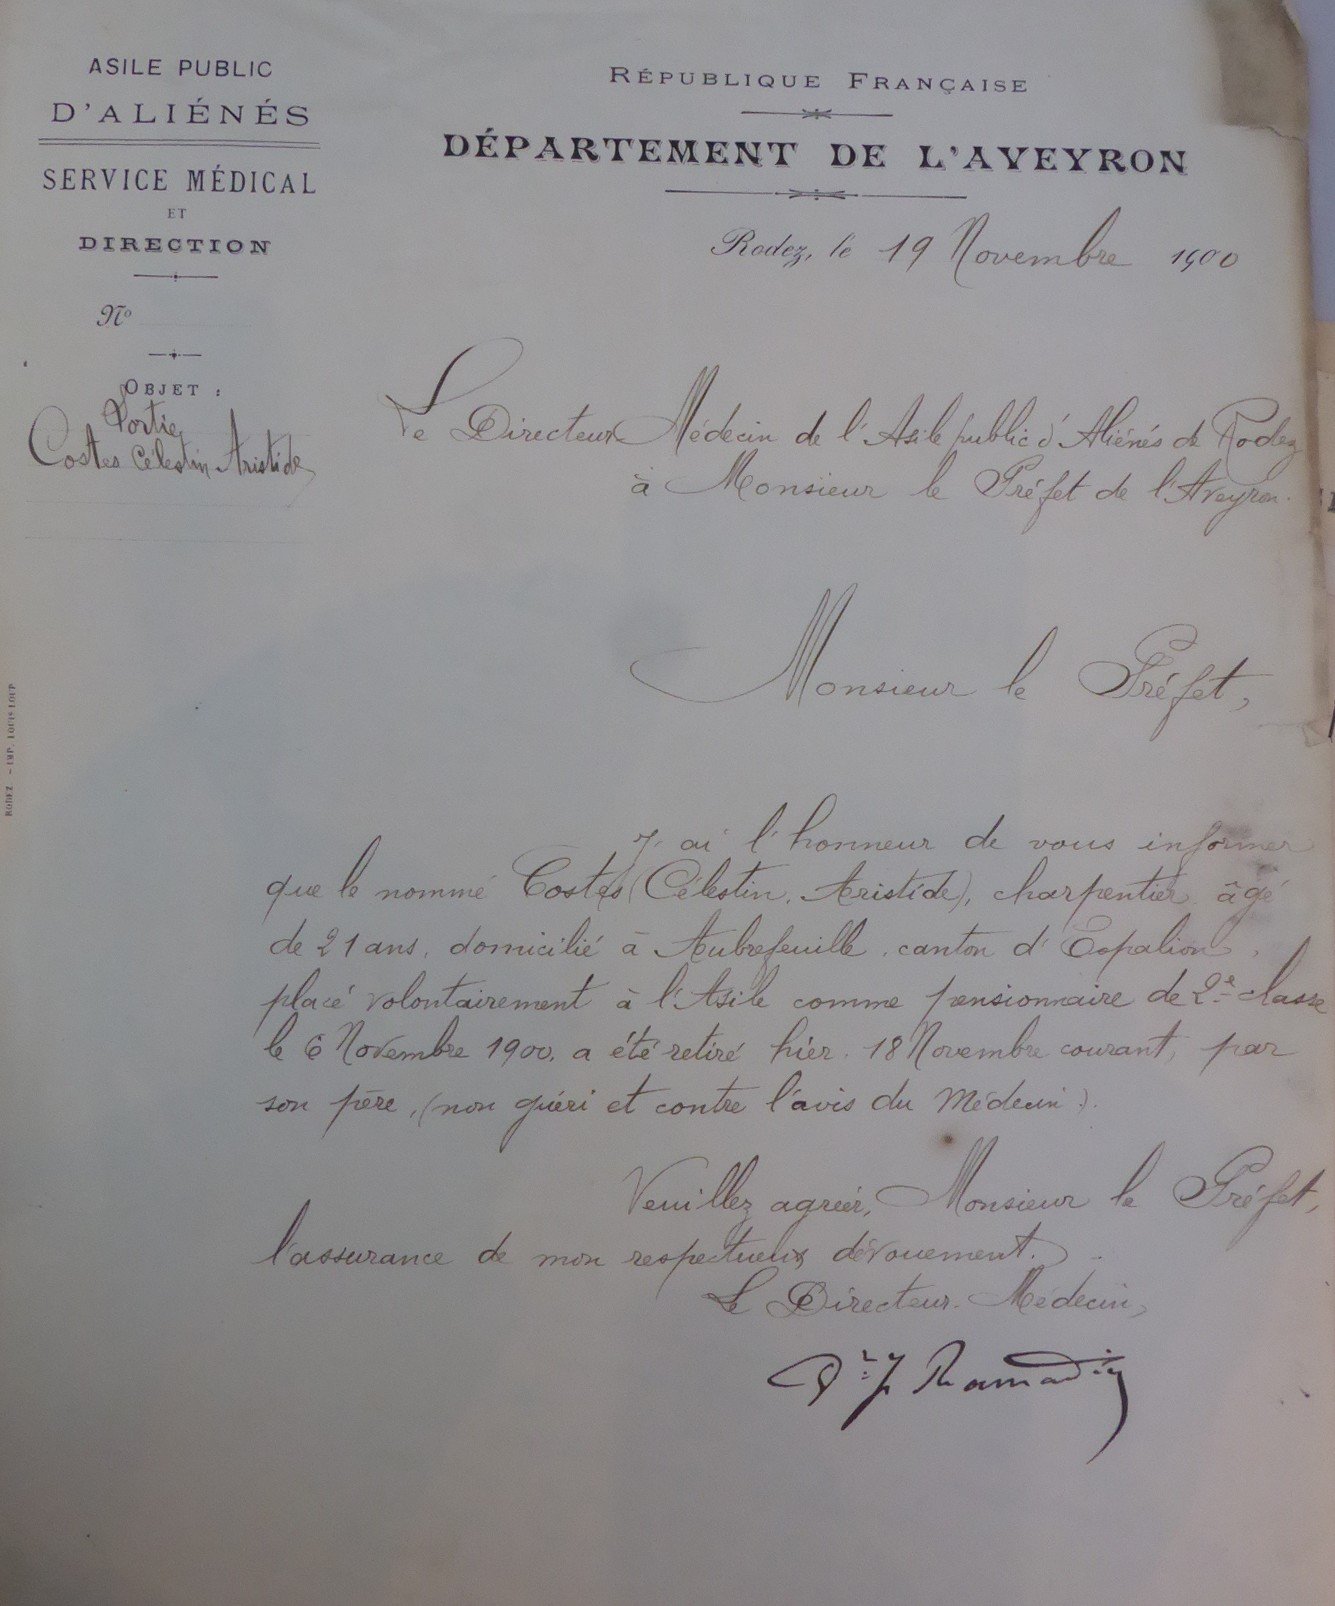 ASILE PUBLIC
D'ALIÉNÉS
SERVICE MÉDICAL
ET
DIRECTION
No
OBJET :
Sortie
Costes Célestin Aristide
RÉPUBLIQUE FRANÇAISE
DÉPARTEMENT DE L'AVEYRON
Rodez, le 19 Novembre 1900
Le Directeur Médecin de l'Asile public d'Aliénés de Rodez
à Monsieur le Préfet de l'Aveyron.
Monsieur le Préfet,
J'ai l'honneur de vous informer
que le nommé Costes (Célestin, Aristide), charpentier, âgé
de 21 ans, domicilié à Aubrefeuille, canton d'Espalion,
placé volontairement à l'Asile comme pensionnaire de 2e classe
le 6 Novembre 1900, a été retiré hier, 18 Novembre courant, par
son père, (non guéri et contre l'avis du Médecin).
Veuillez agréer, Monsieur le Préfet,
l'assurance de mon respectueux dévouement.
Le Directeur-Médecin,
Dr J Ramadier
RODEZ - IMP. LOUIS LOUP